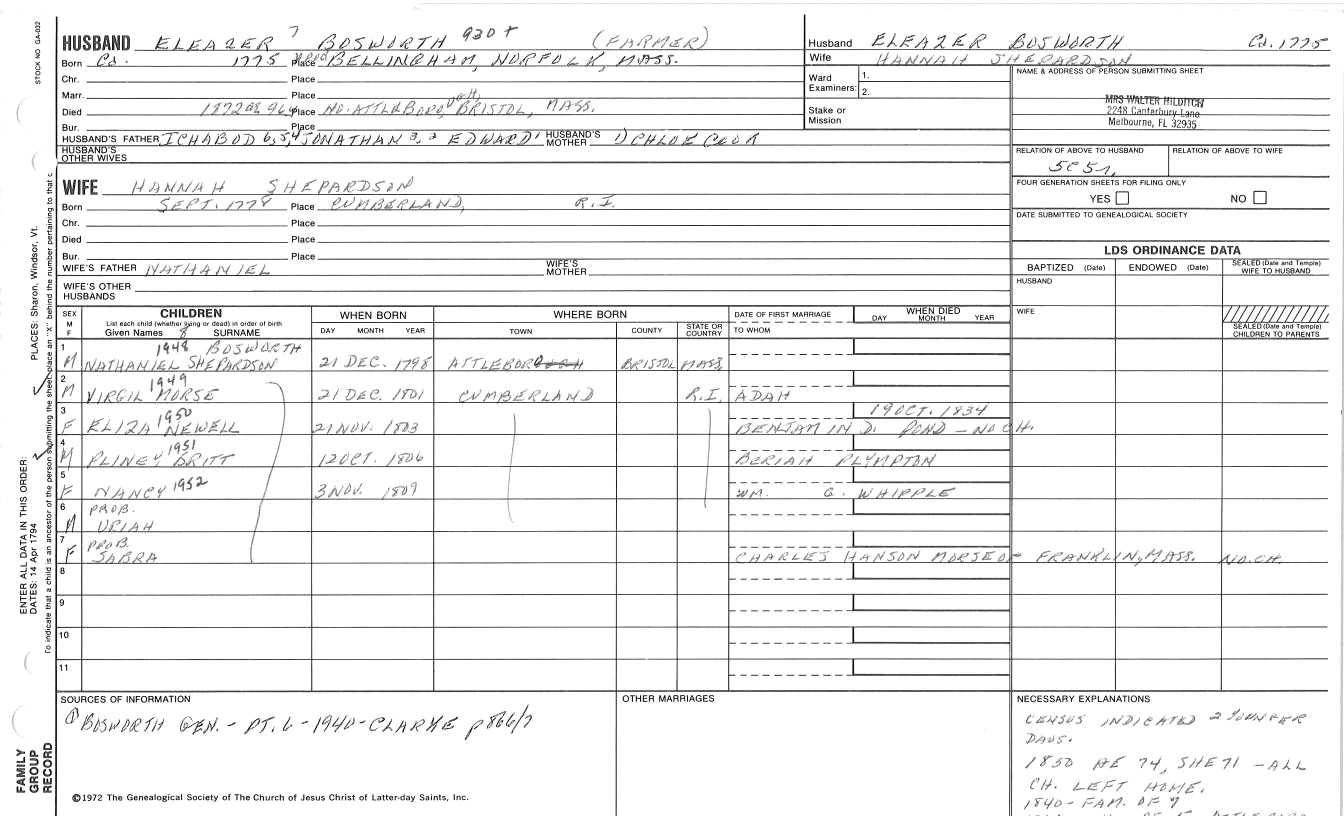 STOCK NO. GA-032
HUSBAND ELEAZER 7 BOSWORTH 930+ (FARMER)
Born Ca. 1775 Place BELLINGHAM, NORFOLK, MASS.
Chr. Place
Marr. Place
Died 1872 96 Place NO. ATTLEBORO, BRISTOL, MASS.
Bur. Place
HUSBAND'S FATHER ICHABOD 6, 5, 4 JONATHAN 3, 2 EDWARD 1 HUSBAND'S MOTHER 1) CHLOE COOK
HUSBAND'S OTHER WIVES
Husband ELEAZER BOSWORTH Ca. 1775
Wife HANNAH SHEPARDSON
Ward Examiners: 1.
2.
Stake or Mission
NAME & ADDRESS OF PERSON SUBMITTING SHEET
MRS WALTER HILDITCH
2248 Canterbury Lane
Melbourne, FL 32935
RELATION OF ABOVE TO HUSBAND RELATION OF ABOVE TO WIFE
5C5r.
FOUR GENERATION SHEETS FOR FILING ONLY
YES NO
DATE SUBMITTED TO GENEALOGICAL SOCIETY
WIFE HANNAH SHEPARDSON
Born SEPT. 1778 Place CUMBERLAND, R.I.
Chr. Place
Died Place
Bur. Place
WIFE'S FATHER NATHANIEL WIFE'S MOTHER
WIFE'S OTHER HUSBANDS
LDS ORDINANCE DATA
BAPTIZED (Date) ENDOWED (Date) SEALED (Date and Temple) WIFE TO HUSBAND
HUSBAND
WIFE
SEALED (Date and Temple) CHILDREN TO PARENTS
SEX M F CHILDREN WHEN BORN WHERE BORN DATE OF FIRST MARRIAGE WHEN DIED
List each child (whether living or dead) in order of birth
Given Names 8 SURNAME DAY MONTH YEAR TOWN COUNTY STATE OR COUNTRY TO WHOM DAY MONTH YEAR
1 1948 BOSWORTH
M NATHANIEL SHEPARDSON 21 DEC. 1798 ATTLEBOROUGH BRISTOL MASS.
2 1949
M VIRGIL MORSE 21 DEC. 1801 CUMBERLAND R.I. ADAH
3 1950 19 OCT. 1834
F ELIZA NEWELL 21 NOV. 1803 BENJAMIN D. POND - NO CH.
4 1951
M PLINEY BRITT 12 OCT. 1806 BERIAH PLYMPTON
5
F NANCY 1952 3 NOV. 1809 WM. G. WHIPPLE
6 PROB.
M URIAH
7 PROB.
F SABRA CHARLES HANSON MORSE - FRANKLIN, MASS. NO. CH.
8
9
10
11
SOURCES OF INFORMATION
① BOSWORTH GEN. - PT. 6 - 1940 - CLARKE p 866/7
OTHER MARRIAGES
NECESSARY EXPLANATIONS
CENSUS INDICATED 2 YOUNGER
DAUS.
1850 HE 74, SHE 71 - ALL
CH. LEFT HOME.
1840 - FAM. OF 7
©1972 The Genealogical Society of The Church of Jesus Christ of Latter-day Saints, Inc.
PLACES: Sharon, Windsor, Vt.
ENTER ALL DATA IN THIS ORDER:
DATES: 14 Apr 1794
To indicate that a child is an ancestor of the person submitting the sheet, place an "X" behind the number pertaining to that c
FAMILY
GROUP
RECORD